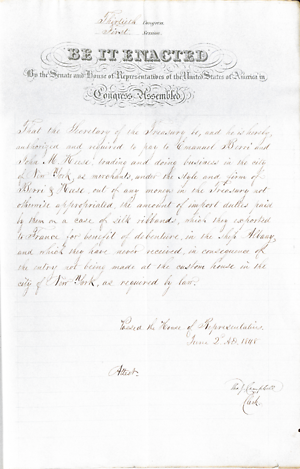 Thirtieth Congress
First Session
BE IT ENACTED
By the Senate and House of Representatives of the United States of America in
Congress Assembled
That the Secretary of the Treasury be, and he is hereby,
authorized and required to pay to Emanuel Berri and
John M. Hesse, trading and doing business in the city
of New York, as merchants, under the style and firm of
Berri & Hesse, out of any money in the Treasury not
otherwise appropriated, the amount of import duties paid
by them on a case of silk ribands, which they exported
to France for benefit of debenture, in the ship Albany,
and which they have never received, in consequence of
the entry not being made at the custom house in the
city of New York, as required by law.
Passed the House of Representatives
June 2 AD. 1848
Attest.
Tho J. Campbell
Clerk